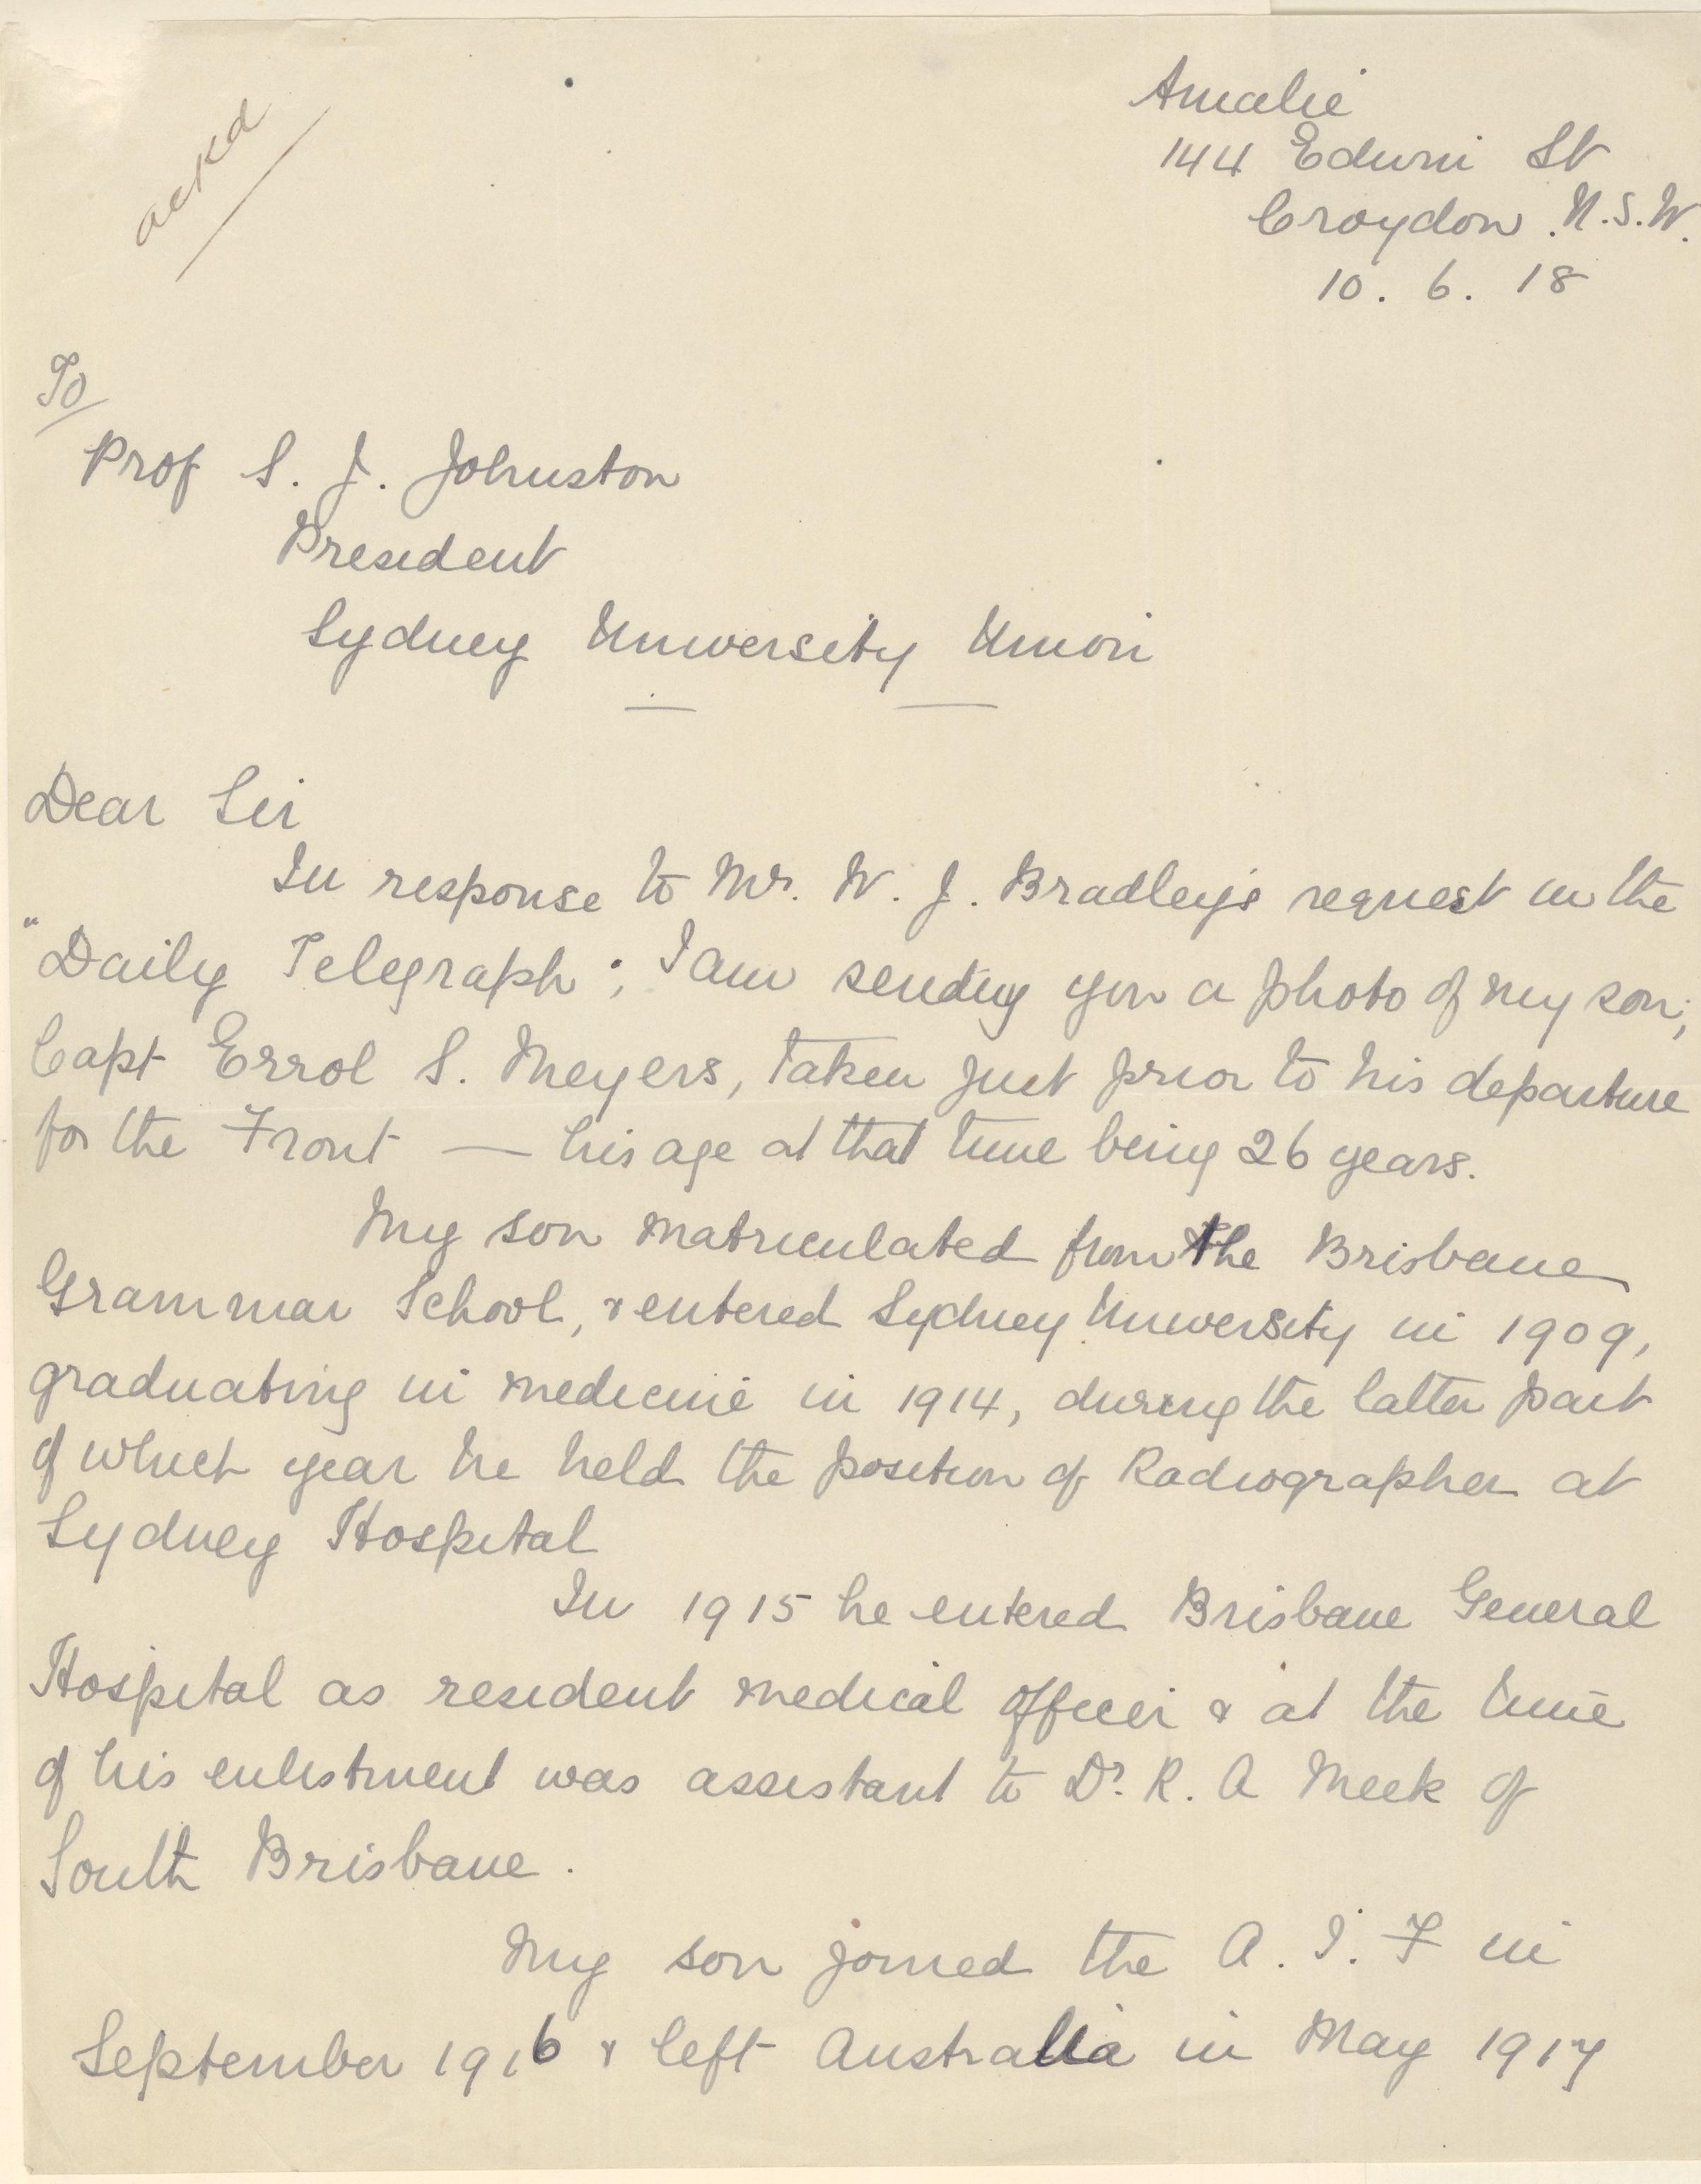 ackd
Amalie
144 Edwin St
Croydon . N.S.W.
10 . 6 . 18
To
Prof S. J. Johnston
President
Sydney University Union
Dear Sir
In response to Mr. W. J. Bradley's request in the
"Daily Telegraph", I am sending you a photo of my son,
Capt Errol S. Meyers, taken just prior to his departure
for the Front — his age at that time being 26 years.
My son matriculated from the Brisbane
Grammar School, & entered Sydney University in 1909,
graduating in medicine in 1914, during the latter part
of which year he held the position of Radiographer at
Sydney Hospital
In 1915 he entered Brisbane General
Hospital as resident medical officer & at the time
of his enlistment was assistant to Dr. R. A Meek of
South Brisbane .
My son joined the A. I. F in
September 1916 & left Australia in May 1917